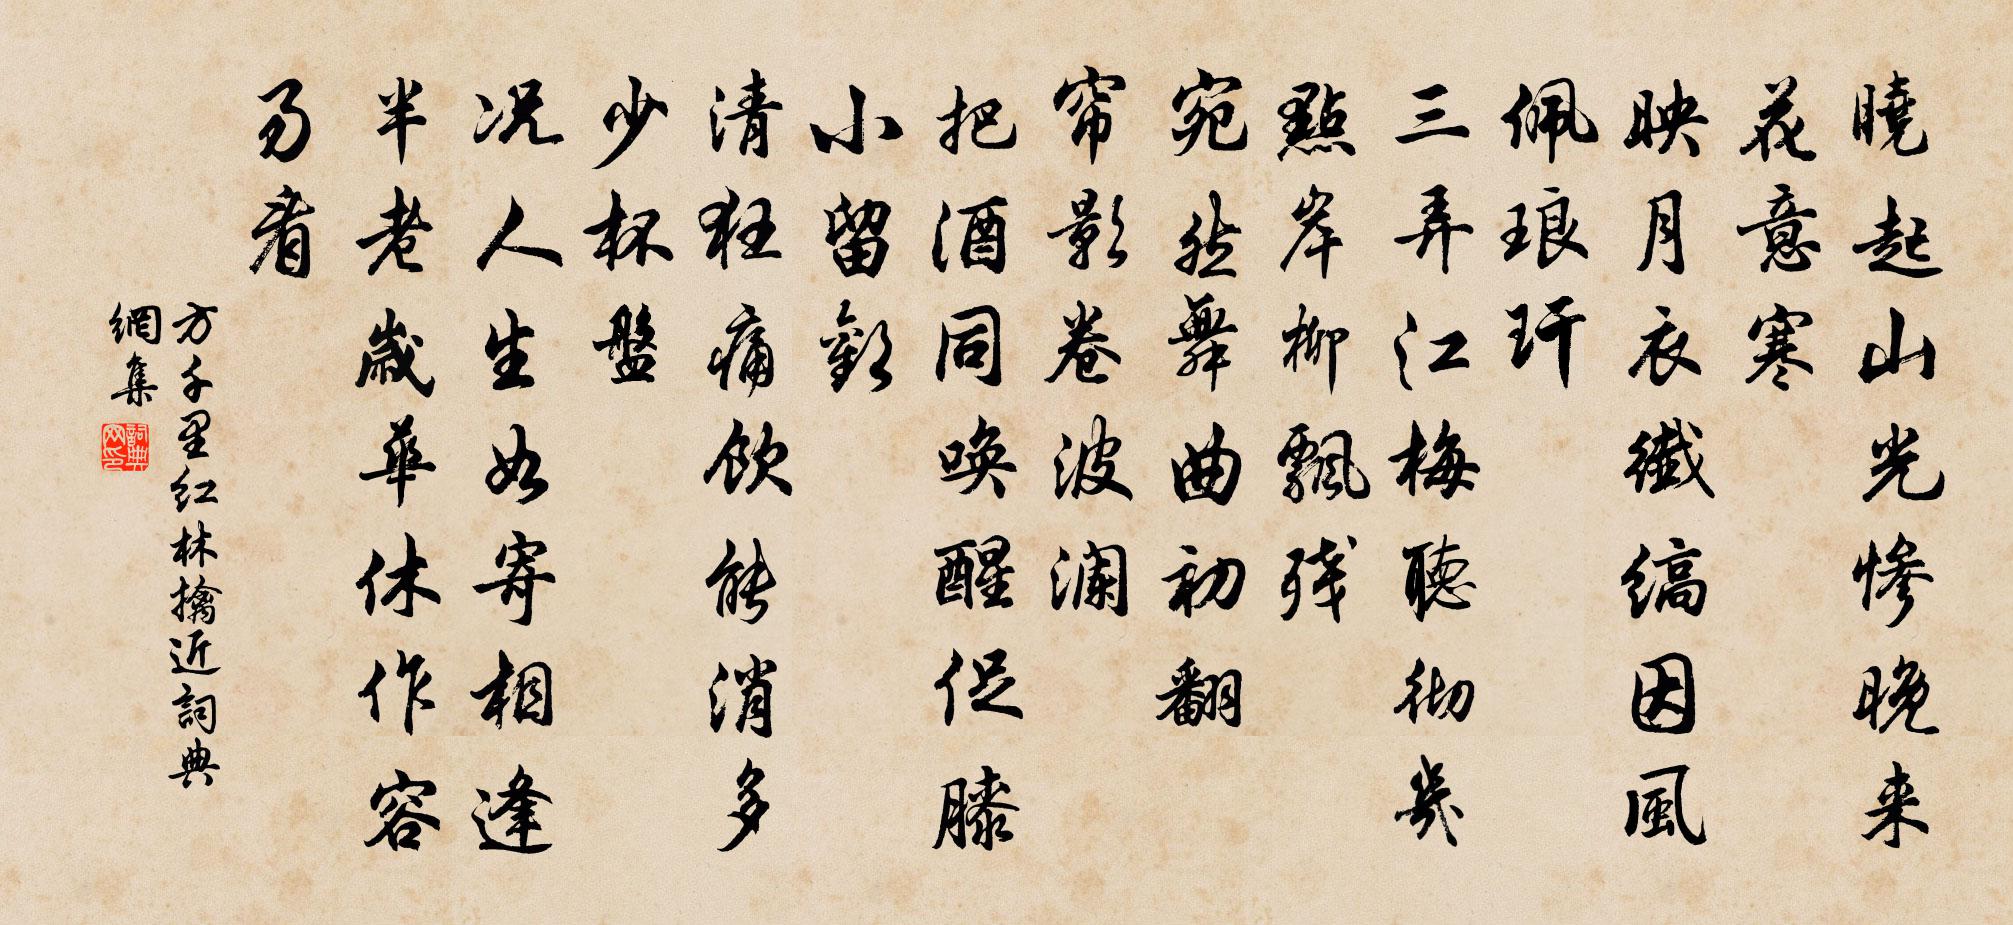 曉起山光慘晚来
花意寒
映月衣纖縞因風
佩琅玕
三弄江梅聽彻幾
點岸柳飄残
宛然舞曲初翻
帘影卷波澜
把酒同唤醒促膝
小留歡
清狂痛飲能消多
少杯盤
况人生如寄相逢
半老歲華休作容
易看
方千里红林擒近詞典
網集
詞典
网印